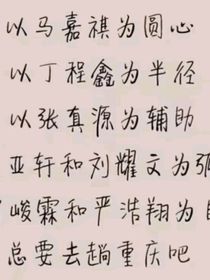 以马嘉祺为圆心
以丁程鑫为半径
以张真源为辅助
亚轩和刘耀文为弧
峻霖和严浩翔为
总要去趟重庆吧